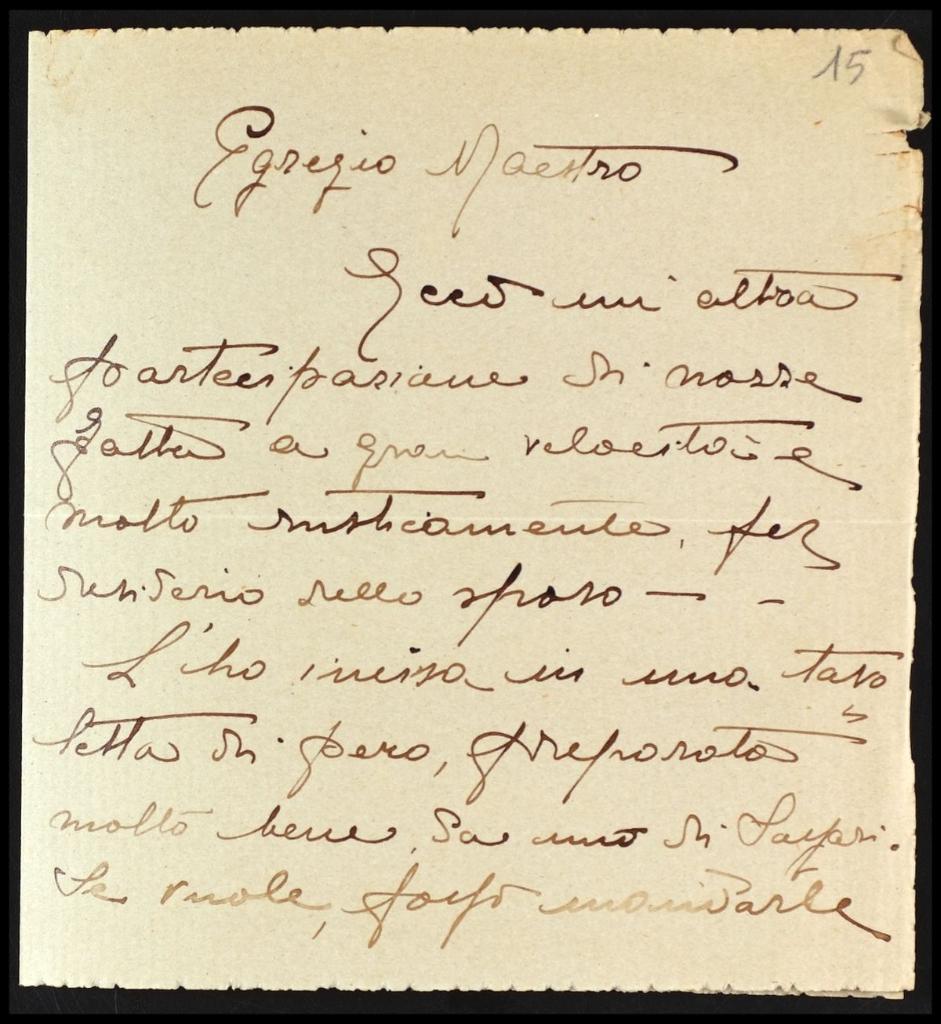 15
Egregio Maestro
Ecco un'altra
partecipazione di nozze
fatta a gran velocità e
molto rusticamente, per
desiderio dello sposo — –
L'ho incisa in una tavo
letta di pero, preparata
molto bene, da uno di Sassari.
Se vuole, posso mandarle